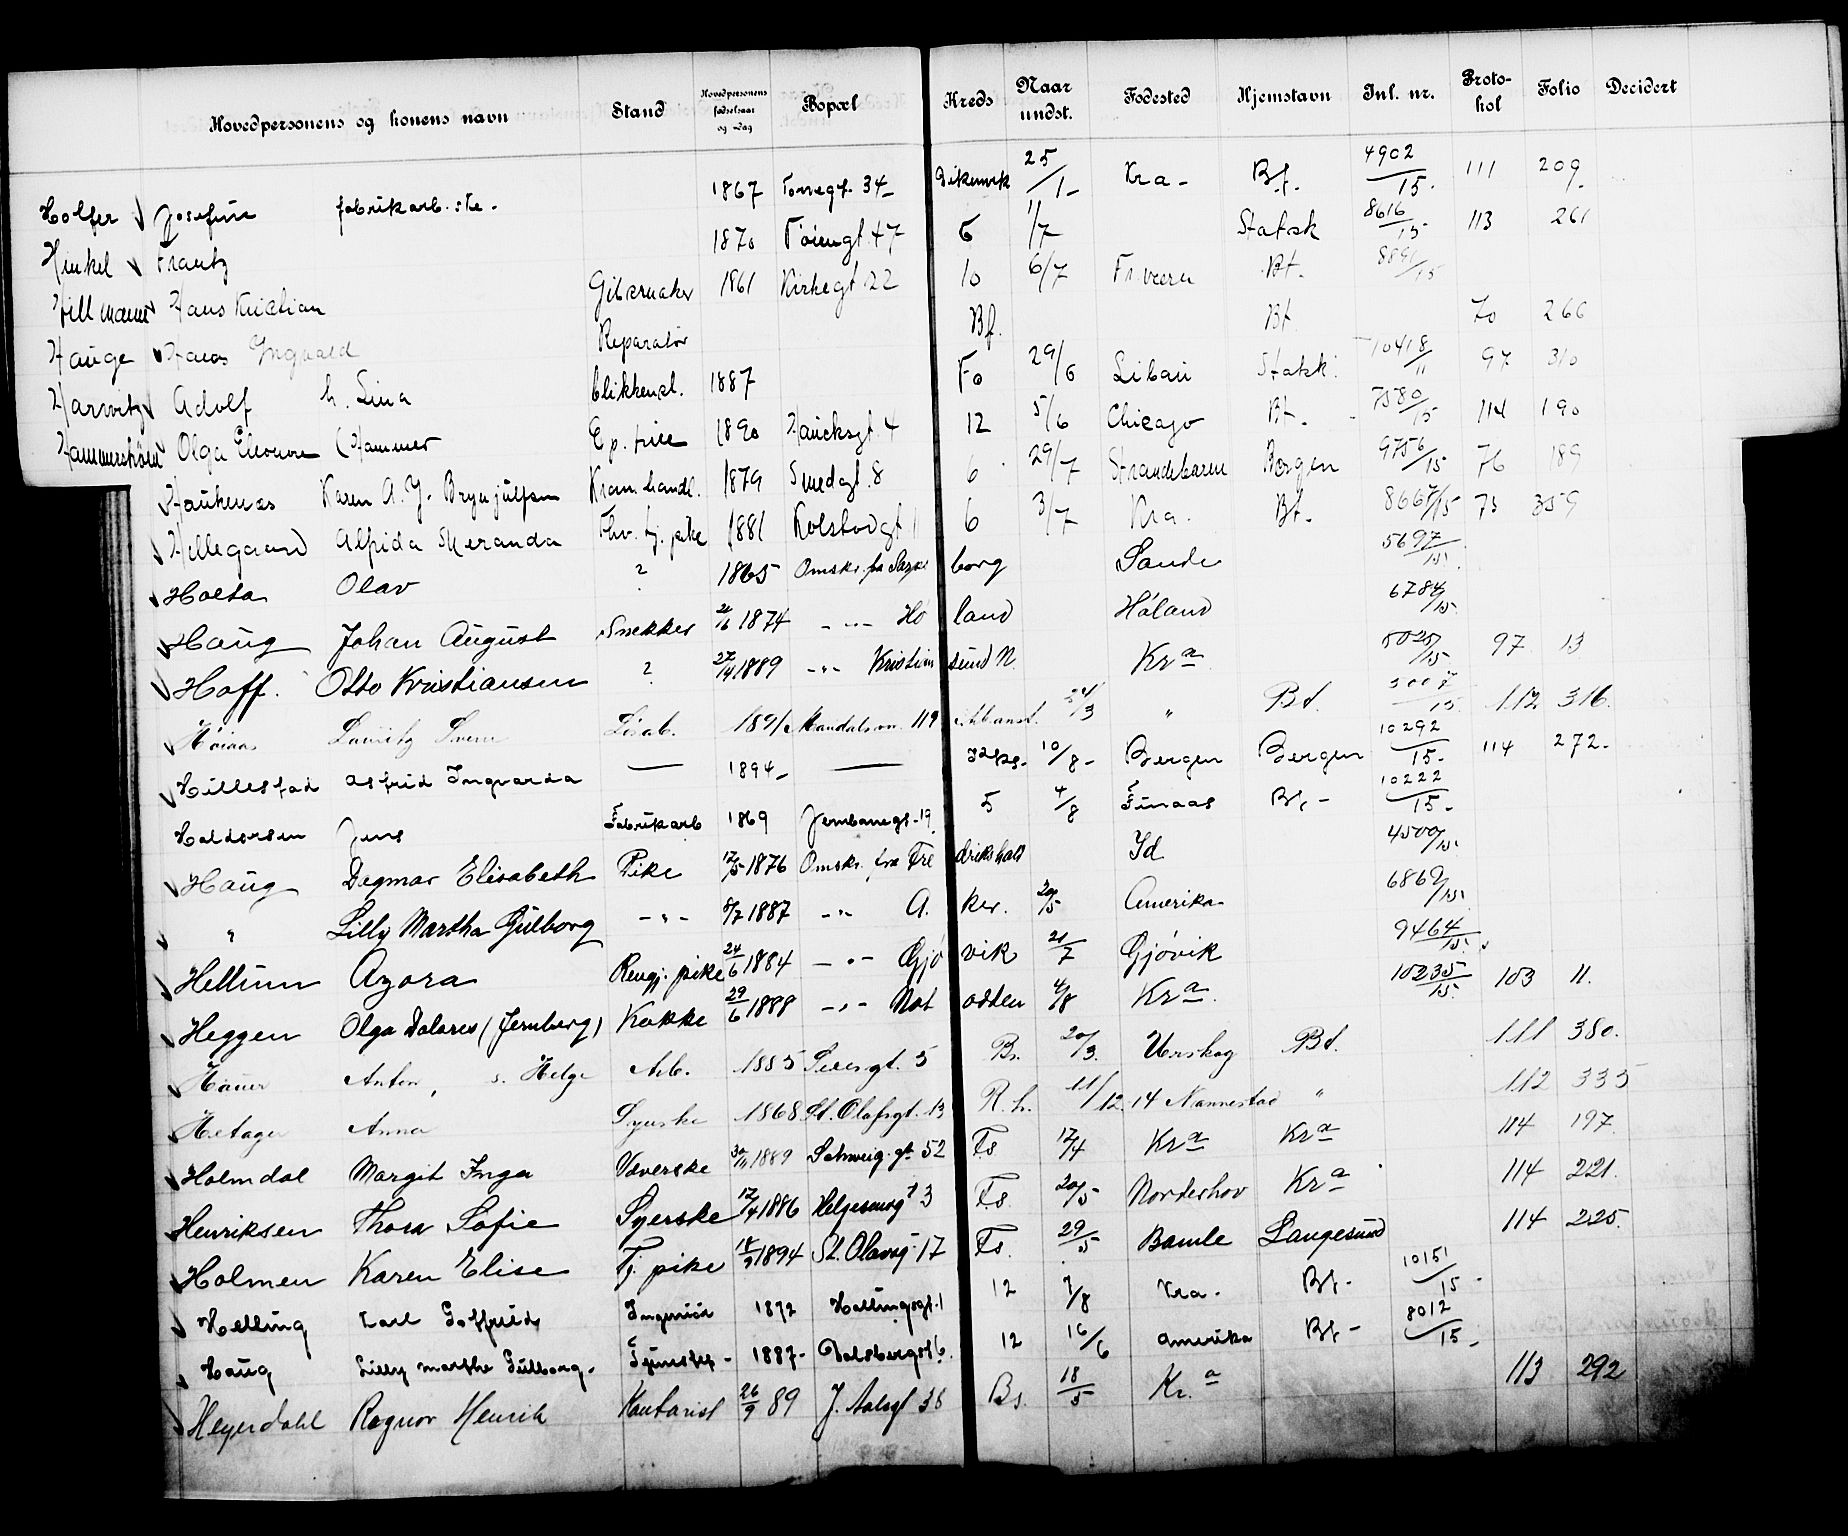 Hovedpersonens og konens navn Stand Hovedpersonens fødselsaar og -dag Bopæl Kreds Naar undst. Fødested Hjemstavn Inl. nr. Protokol Folio Decidert
Holfer Josefine fabrikarb.ste. 1867 Torvegt. 34 Dikemark 25/1 Kra. Bf. 4902/15. 111 209
Hinkel Frantz 1870 Töiengt. 47 6 1/7 Statsk 8616/15 113 261
Hillmann Hans Kristian Gibsmaker 1861 Kirkegt 22 10 6/7 Bt. 8891/15
Hauge Hans Ingvald Reparatör Bf. Bt. 70 266
Harvitz Adolf h. Lina blikkensl. 1887 Fo 29/6 Libau Statsk. 10418/11 97 310
Hammerström Olga Elenore (Hammer Ep. pike 1890 Haucksgt. 4 12 5/6 Chicago Bt. 7580/15 114 190
Haukenæs Karen A. J. Brynjulfsen Kram.handl. 1879 Smedgt. 8 6 29/7 Strandebarm Bergen 9756/15 76 189
Hellegaard Alfida Meranda Fhv. tj. pike 1881 Kolstadgt 1 6 3/7 Kra. Bt. 8667/15 73 359
Holta Olav ? 1865 Omskr. fra Sarpsborg Sande 5697/15.
Haug Johan August Snekker 21/6 1874 -"- Höland Höland 6784/15.
Hoff. Otto Kristiansen ? 27/4 1889 -"- Kristiansund N. Kra 5025/15 97 13
Höiaas Lauritz Lösarb. 1891 Mandalsvn. 119 24/3 " Bt. 5007/15. 112 316.
Hillestad Astrid Ingvarda — 1894 — 10/8 Bergen Bergen 10292/15. 114 272.
Haldorsen Jens Fabrikarb 1869 Jernbanegt. 19. 5 4/8 Finaas Bt. 10222/15.
Haug Dagmar Elisabeth Pike 17/5 1876 Omskr. fra Fredrikshald Id 4500/15.
" Lilly Martha Gulborg -"- 8/7 1887 -"- Aker. 20/5 Amerika 6862/15.
Hellum Azora Rengj. pike 24/6 1884 -"- Gjövik 21/7 Gjövik 9464/15.
Heggen Olga Dolores (Jernberg) Kokke 29/6 1888 -"- Notodden 4/8 Kra. 10235/15. 103 11.
Hauer Anton, s. Helge Arb. 1885 5 Bs. 20/3. Urskog Bt. 111 380.
Hetager Anna Syerske 1868 St. Olafsgt. 13 R.h. 11/12.14 Nannestad " 112 335
Holmdal Margit Inga Væverske 30/11 1889 Schweig.gt. 52 Fs 17/4 Kra Kra 114 197.
Henriksen Thora Sofie Syerske 17/4 1886 Helgesensgt 3 Fs. 20/5 Norderhov Kra 114 221.
Holmen Karen Elise Tj. pike 18/9 1894 St. Olavsg. 17 Fs. 29/5 Bamle Langesund 114 225.
Helling Karl Gotfried Ingeniör 1872 Hallingsgt. 1 12 7/8 Kra. Bt. 10151/15.
Haug Lilly Marthe Gulborg. Tjenestep. 1887 Dalsbergst 6. 12 16/6 Amerika Bt. 8012/15.
Heyerdahl Ragnar Henrik Kontorist 26/9 89 J. Aalsgt 38 Bs. 18/5 Kr.a 113 292